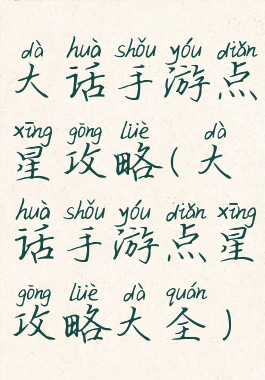 dà huà shǒu yóu diǎn
大话手游点
xīng gōng lüè dà
星攻略(大
huà shǒu yóu diǎn xīng
话手游点星
gōng lüè dà quán
攻略大全)